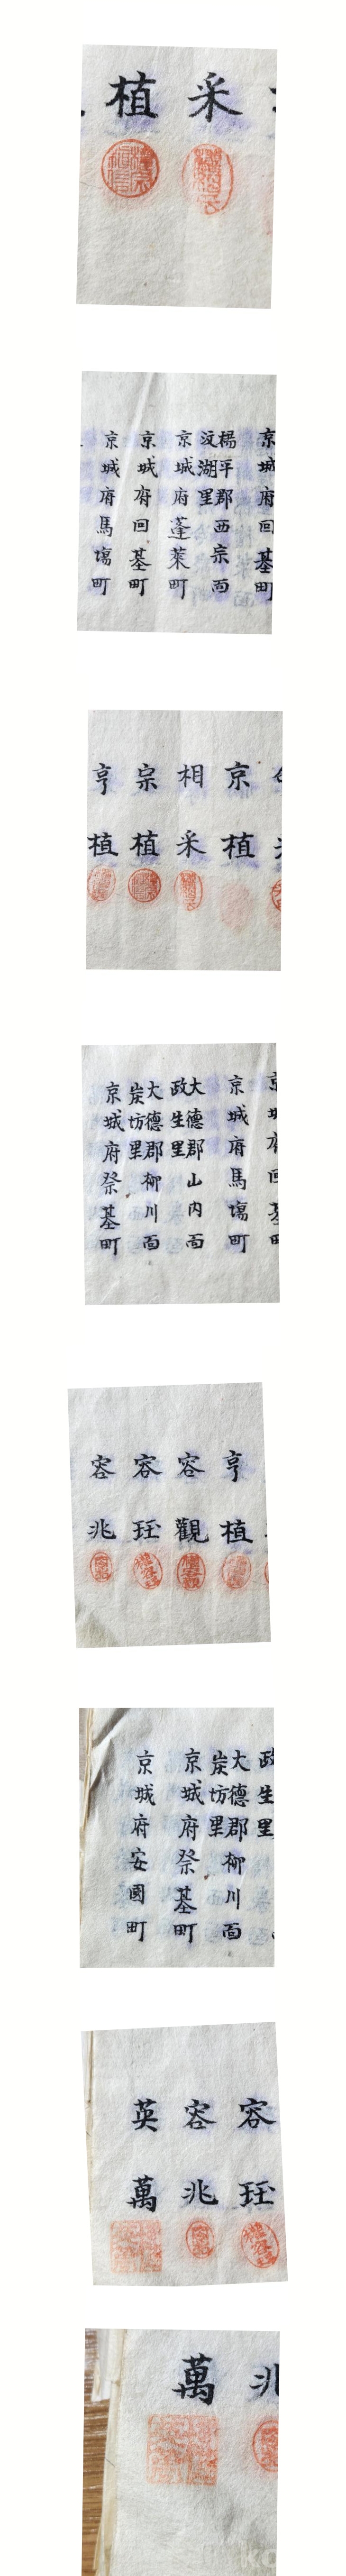 采
植
京城府回基町
楊平郡西宗面
汶湖里
京城府蓬萊町
京城府回基町
京城府馬塲町
京植
相采
宗植
亨植
京城府馬塲町
大德郡山内面
政生里
大德郡柳川面
炭坊里
京城府祭基町
亨植
容觀
容珏
容兆
政生里
大德郡柳川面
炭坊里
京城府祭基町
京城府安國町
容珏
容兆
英萬
兆
萬